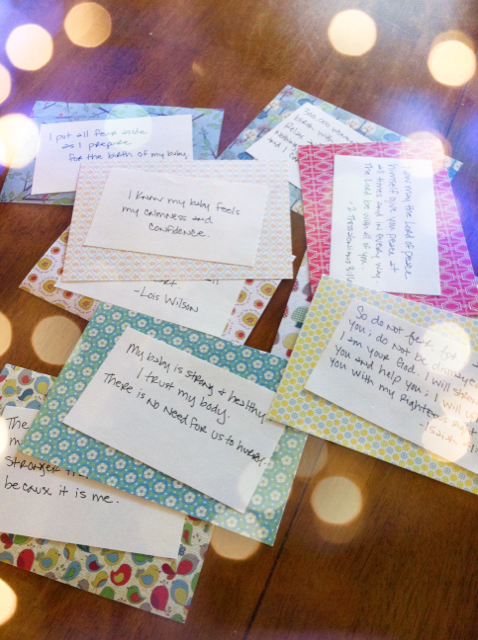 I put all fear aside
as I prepare
for the birth of my baby.
birth with
I know my baby feels
my calmness and
confidence.
Now may the Lord of peace
Himself give you peace at
all times and in every way.
The Lord be with all of you.
-2 Thessalonians 3:16
-Lois Wilson
So do not fear, for
you; do not be dismaye
I am your God. I will stren
you and help you; I will u
you with my righteous right
-Isaiah
My baby is strong & healthy.
I trust my body.
There is no need for us to hurry.
The
m
stronger
because it is me.